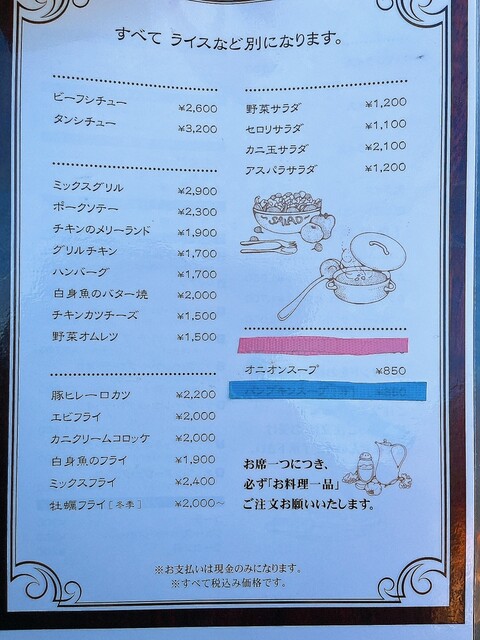 すべて ライスなど別になります。
ビーフシチュー ¥2,600
タンシチュー ¥3,200
ミックスグリル ¥2,900
ポークソテー ¥2,300
チキンのメリーランド ¥1,900
グリルチキン ¥1,700
ハンバーグ ¥1,700
白身魚のバター焼 ¥2,000
チキンカツチーズ ¥1,500
野菜オムレツ ¥1,500
豚ヒレ一口カツ ¥2,200
エビフライ ¥2,000
カニクリームコロッケ ¥2,000
白身魚のフライ ¥1,900
ミックスフライ ¥2,400
牡蠣フライ[冬季] ¥2,000~
野菜サラダ ¥1,200
セロリサラダ ¥1,100
カニ玉サラダ ¥2,100
アスパラサラダ ¥1,200
SALAD
オニオンスープ ¥850
パンプキンスープ
お席一つにつき、
必ず「お料理一品」
ご注文お願いいたします。
※お支払いは現金のみになります。
※すべて税込み価格です。